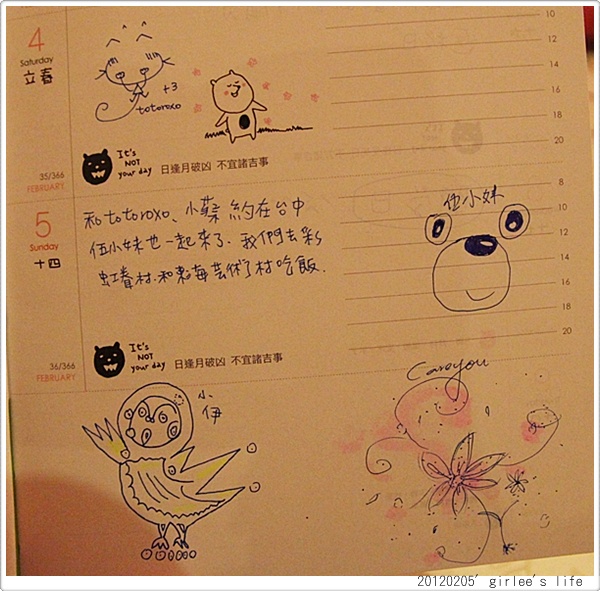 4
Saturday
立春
+3
totoroxo
10
12
14
16
18
20
35/366
FEBRUARY
It's NOT your day
日逢月破凶 不宜諸吉事
5
Sunday
十四
和totoroxo、小蔡約在台中
伍小妹也一起來了.我們去彩
虹眷村.和東海芸術村吃飯.
伍小妹
8
10
12
14
16
18
20
36/366
FEBRUARY
It's NOT your day
日逢月破凶 不宜諸吉事
小伊
Careyou
20120205' girlee's life